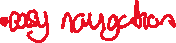 •easy navigation